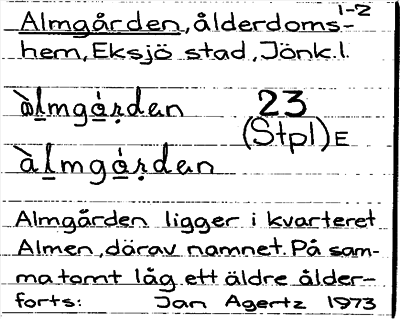 1-2
Almgården, ålderdoms-
hem, Eksjö stad, Jönk.l.
àlmgárdan 23
(Stpl) E
àlmgárdan
Almgården ligger i kvarteret
Almen, därav namnet. På sam-
ma tomt låg ett äldre ålder-
forts: Jan Agertz 1973